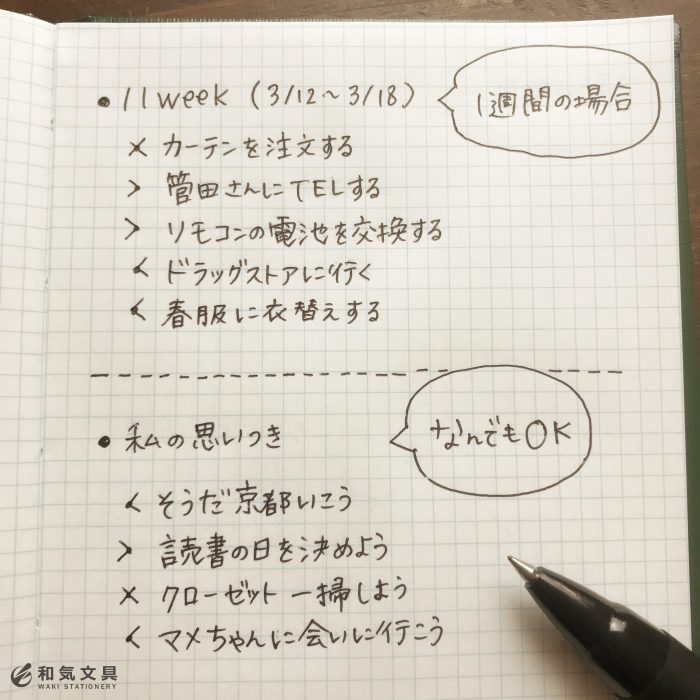 ● 11week (3/12〜3/18)
1週間の場合
× カーテンを注文する
> 管田さんにTELする
> リモコンの電池を交換する
< ドラッグストアに行く
< 春服に衣替えする
● 私の思いつき
なんでもOK
< そうだ京都いこう
> 読書の日を決めよう
× クローゼット一掃しよう
< マメちゃんに会いに行こう
和気文具
WAKI STATIONERY